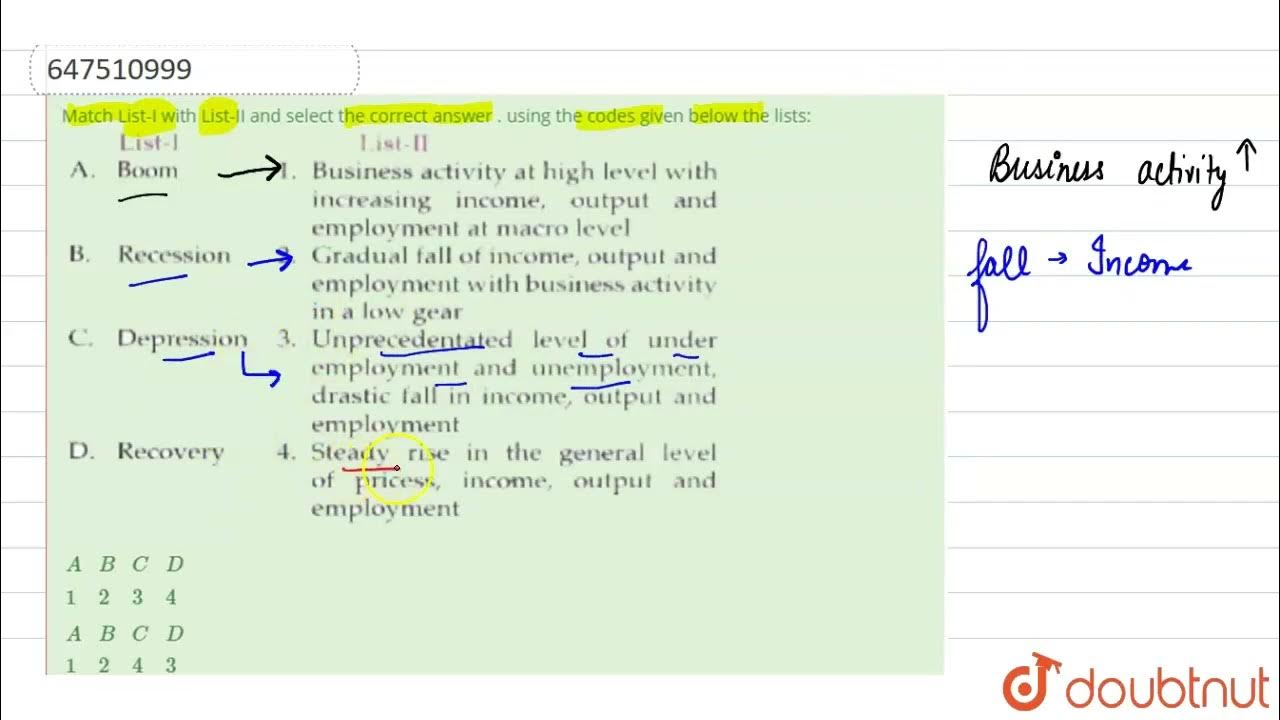 647510999
Match List-I with List-II and select the correct answer . using the codes given below the lists:
List-I List-II
A. Boom 1. Business activity at high level with
increasing income, output and
employment at macro level
B. Recession 2. Gradual fall of income, output and
employment with business activity
in a low gear
C. Depression 3. Unprecedentated level of under
employment and unemployment,
drastic fall in income, output and
employment
D. Recovery 4. Steady rise in the general level
of pricess, income, output and
employment
A B C D
1 2 3 4
A B C D
1 2 4 3
Business activity ↑
fall → Income
doubtnut